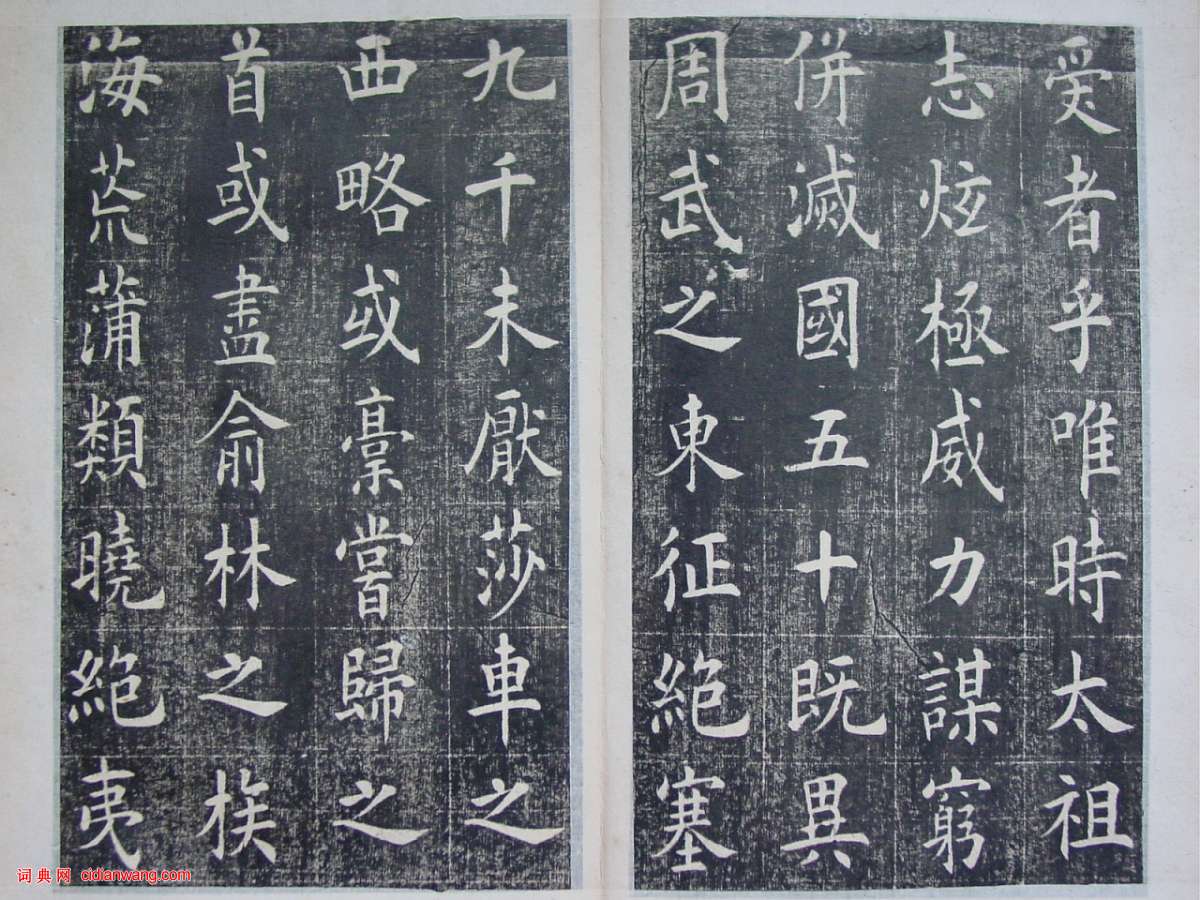 爰者乎唯時太祖
志炫極威力謀窮
併滅國五十既異
周武之東征絶塞
九千未厭莎車之
西略或稾嘗歸之
首或盡俞林之族
海荒蒲類曉絶夷
词典网 cidianwang.com